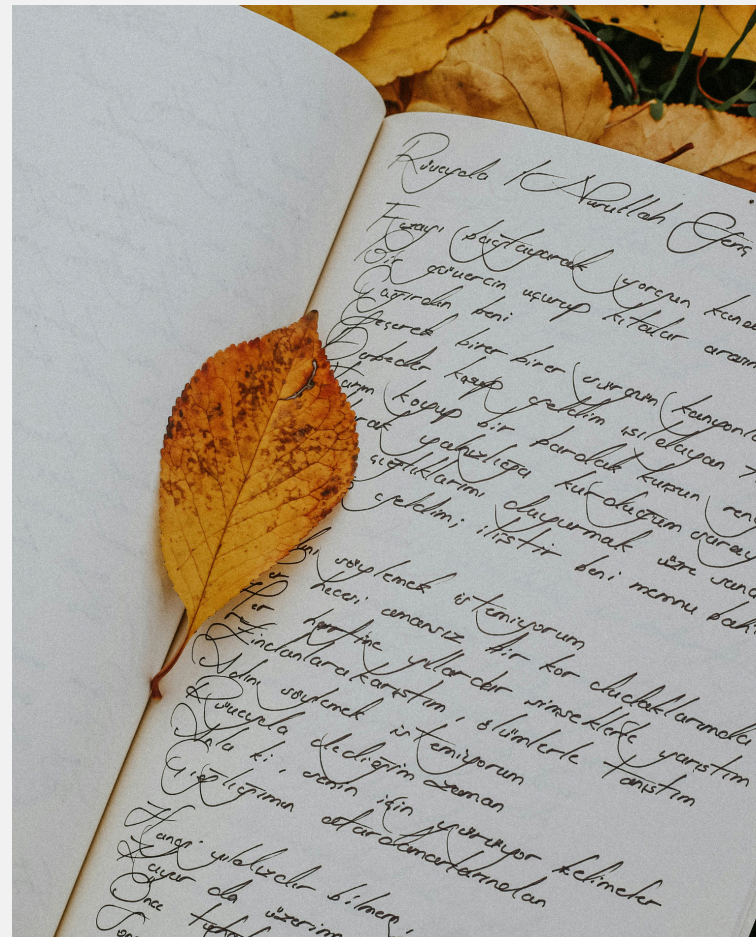 Rüveyda / Nurullah Genç
Fezayı bağlayarak yorgun
Bir güvercin uçurup kıtalar
Çağırdan beni
Geçerek birer birer sürgün
Derbeder kaçıp geldim ışıldayan
koyup bir bardak kurşun
yalnızlığa kurduğum
çığlıklarımı duyurmak üzre sana
geldim; iliştir beni memnu
söylemek istemiyorum
Her hecesi amansız bir kor dudaklarımda
Her harfine yıllardır şimşeklerle yarıştım
Zindanlara karıştım, ölümlerle tanıştım
Adını söylemek istemiyorum
Rüveyda dediğim zaman
Anla ki, senin için yürüyor kelimeler
Çığlığımın atardamarlarından
Hangi yıldızdır bilmem,
Kayar da
Önce